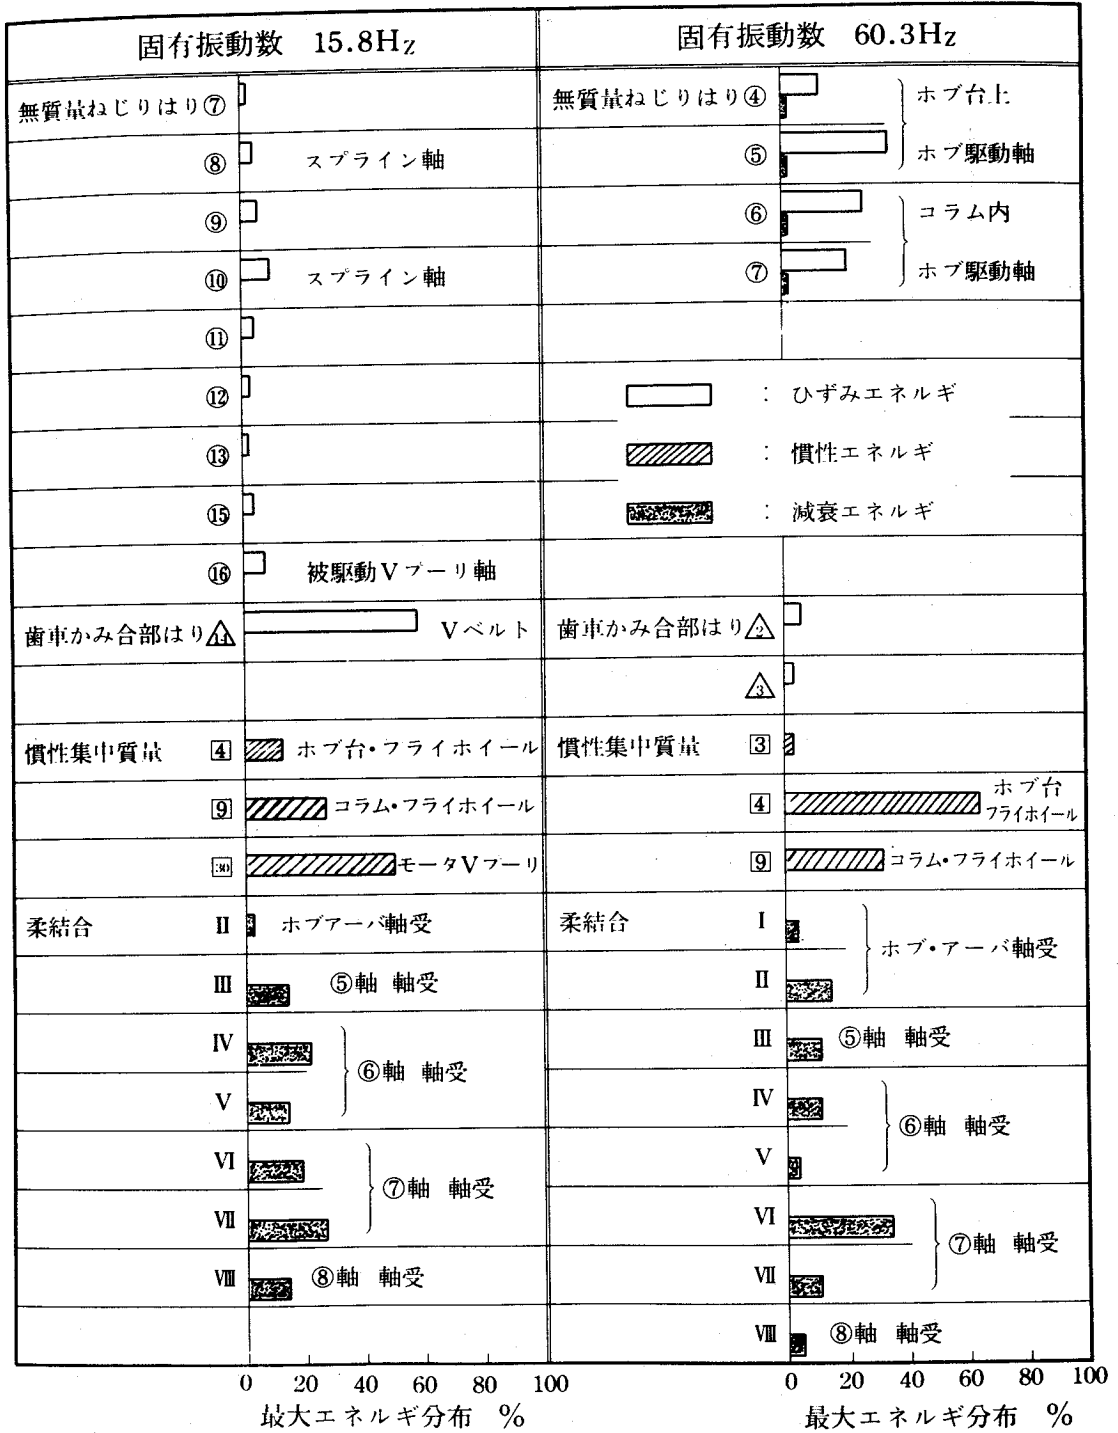 固有振動数 15.8Hz
無質量ねじりはり⑦
⑧ スプライン軸
⑨
⑩ スプライン軸
⑪
⑫
⑬
⑮
⑯ 被駆動Vプーリ軸
歯車かみ合部はり 14 Vベルト
慣性集中質量 4 ホブ台・フライホイール
9 コラム・フライホイール
30 モータVプーリ
柔結合 II ホブアーバ軸受
III ⑤軸 軸受
IV
⑥軸 軸受
V
VI
⑦軸 軸受
VII
VIII ⑧軸 軸受
0 20 40 60 80 100
最大エネルギ分布 %
固有振動数 60.3Hz
無質量ねじりはり④ ホブ台上
⑤ ホブ駆動軸
⑥ コラム内
⑦ ホブ駆動軸
: ひずみエネルギ
: 慣性エネルギ
: 減衰エネルギ
歯車かみ合部はり 2
3
慣性集中質量 3
4 ホブ台
フライホイール
9 コラム・フライホイール
柔結合 I
ホブ・アーバ軸受
II
III ⑤軸 軸受
IV
⑥軸 軸受
V
VI
⑦軸 軸受
VII
VIII ⑧軸 軸受
0 20 40 60 80 100
最大エネルギ分布 %